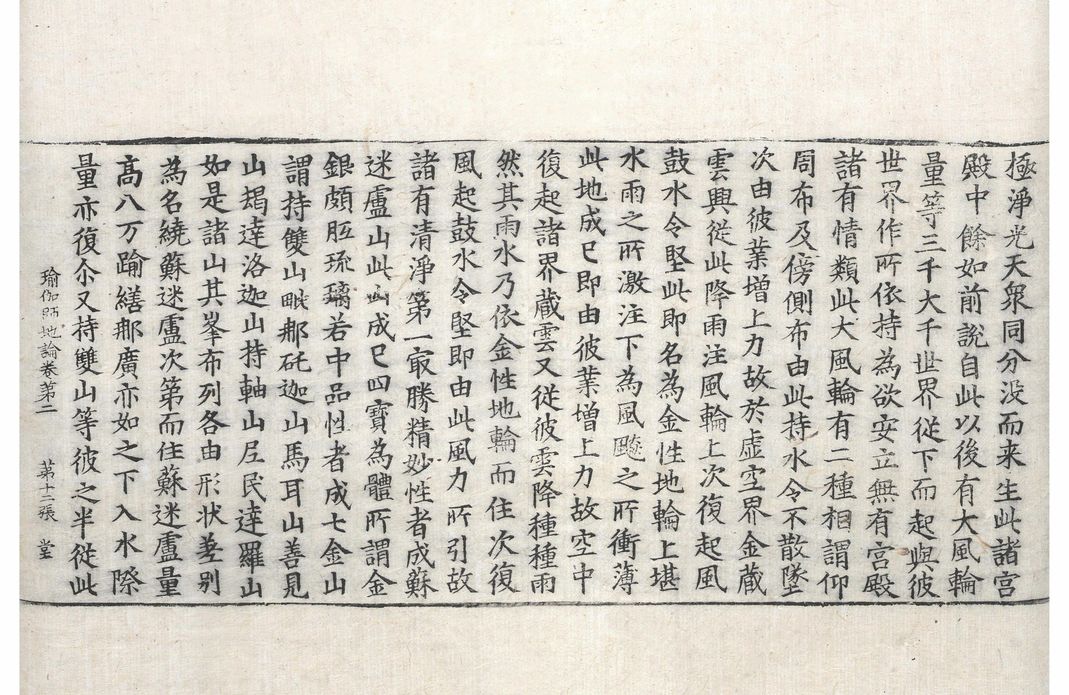 極淨光天衆同分没而来生此諸宮
殿中餘如前説自此以後有大風輪
量等三千大千世界從下而起與彼
世界作所依持為欲安立無有宫殿
諸有情類此大風輪有二種相謂仰
周布及傍側布由此持水令不散墜
次由彼業增上力故於虚空界金蔵
雲興從此降雨注風輪上次復起風
鼓水令堅此即名為金性地輪上堪
水雨之所激注下為風飈之所衝薄
此地成已即由彼業增上力故空中
復起諸界蔵雲又從彼雲降種種雨
然其雨水乃依金性地輪而住次復
風起鼓水令堅即由此風力所引故
諸有清淨第一㝡勝精妙性者成蘇
迷盧山此山成已四寳為體所謂金
銀頗胝琉璃若中品性者成七金山
謂持雙山毗那矺迦山馬耳山善見
山朅達洛迦山持軸山尼民達羅山
如是諸山其峯布列各由形状差别
為名繞蘇迷盧次第而住蘇迷盧量
髙八万踰繕那廣亦如之下入水際
量亦復尒又持雙山等彼之半從此
瑜伽師地論卷第二 第十二張 堂